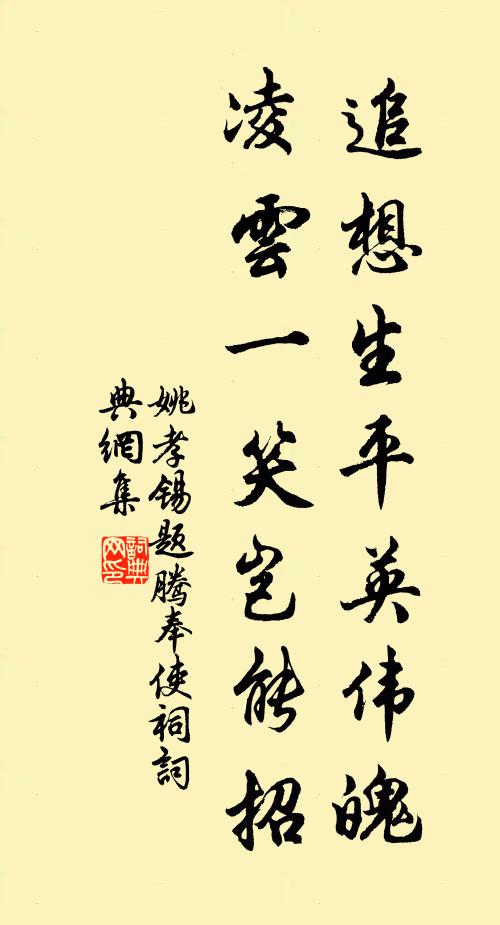 追想生平英伟魄
凌雲一笑岂能招
姚孝锡题滕奉使祠詞
典網集
詞典
网印